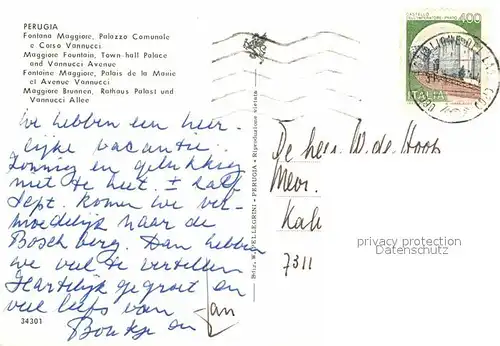 PERUGIA
Fontana Maggiore, Palazzo Comunale
e Corso Vannucci
Maggiore Fountain, Town-hall Palace
and Vannucci Avenue
Fontaine Maggiore, Palais de la Mairie
et Avenue Vannucci
Maggiore Brunnen, Rathaus Palast und
Vannucci Allee
We hebben een heer-
lijke vacantie.
Zonnig en gelukkig
niet te heet. ± half
Sept. komen we ver-
moedelijk naar de
Bosch berg. Dan hebben
we veel te vertellen
Hartelijk gegroet en
veel liefs van
Boukje en Jan
34301
PELLEGRINI - PERUGIA - Riproduzione vietata
CASTELLO
400
ITALIA
De heer W. de Hoop
Mevr.
7311
privacy protection
Datenschutz